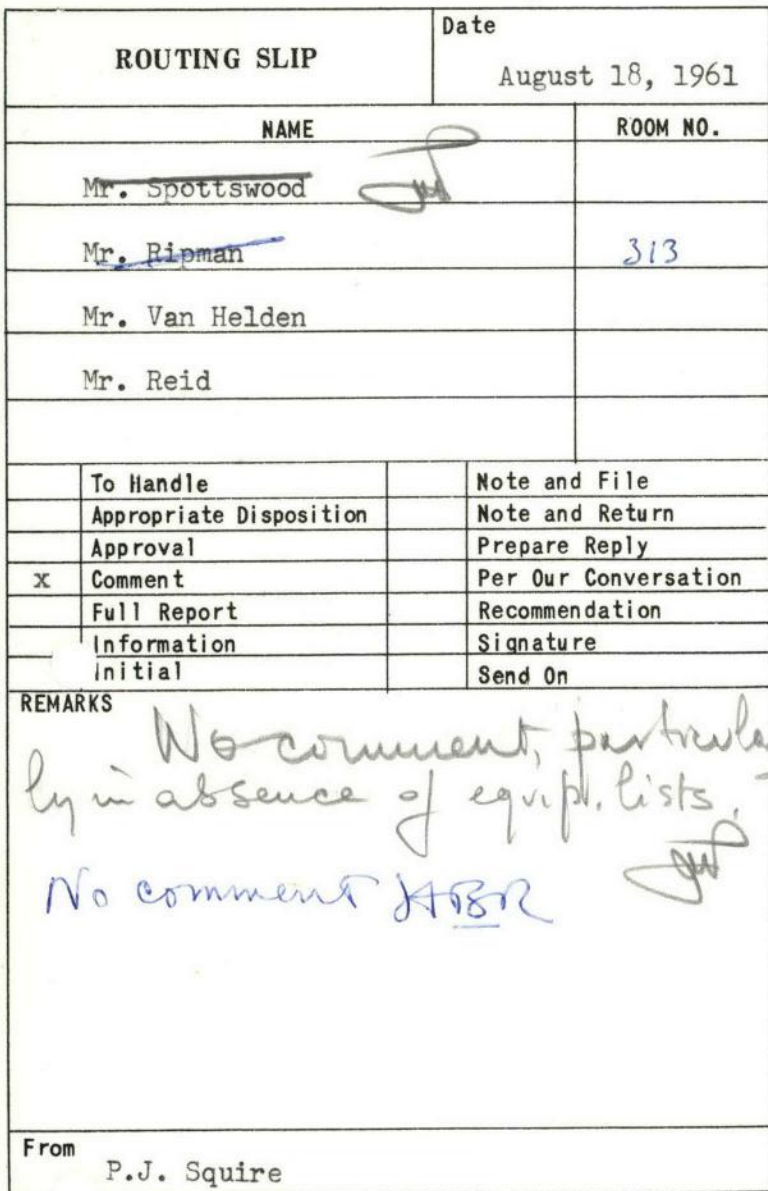 ROUTING SLIP
Date
August 18, 1961
NAME
ROOM NO.
Mr. Spottswood
Mr. Ripman
313
Mr. Van Helden
Mr. Reid
To Handle
Note and File
Appropriate Disposition
Note and Return
Approval
Prepare Reply
x Comment
Per Our Conversation
Full Report
Recommendation
Information
Signature
Initial
Send On
REMARKS
No comment, particular
ly in absence of equip. lists.
No comment HBR
From
P.J. Squire